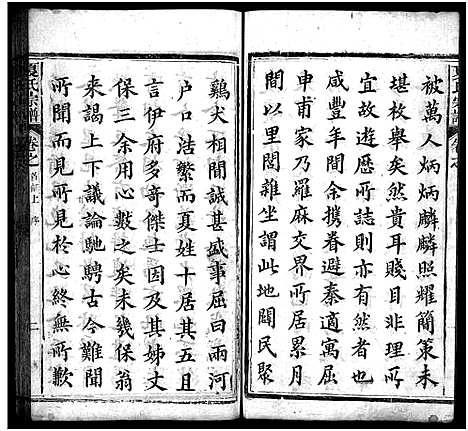 被萬人炳炳麟麟照耀簡策未
堪枚舉然貴耳賤目非理所
宜故遊歷所誌則亦有然也
咸豐年間余攜眷避秦適寓屈
申甫家乃羅麻交界所居累月
間以里閈雜坐謂此地闊民聚
夏氏宗譜
卷之
鷄犬相聞誠甚盛事屈曰雨河
戶口浩繁而夏姓十居其五且
言伊府多奇傑士因及其姊丈
保三余用心數之矣未幾保翁
來謁上下議論馳騁古今難聞
所聞而見所見於心終無所歉
夏氏宗譜
卷之首
上
序
二